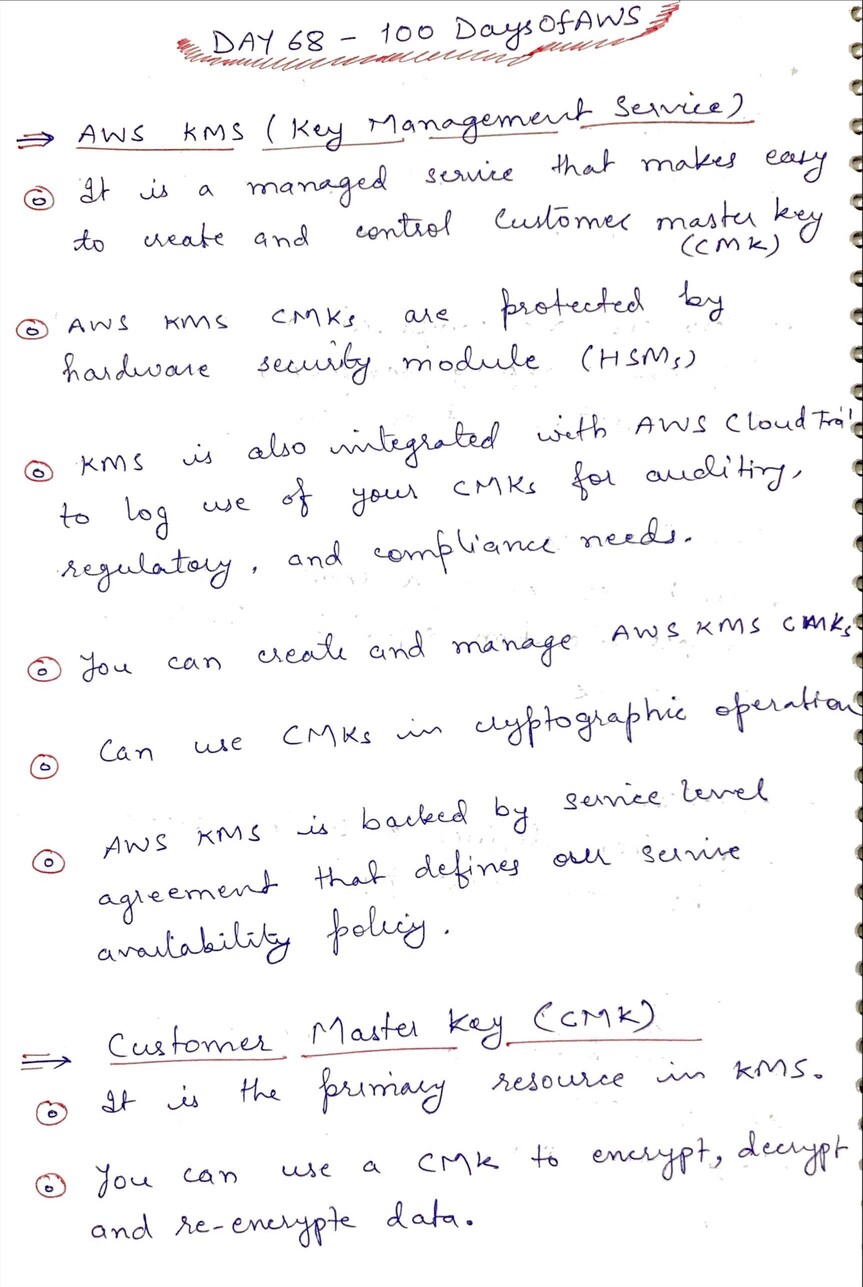 DAY 68 - 100 DaysOfAWS
⇒ AWS KMS (Key Management Service)
It is a managed service that makes easy
to create and control Customer master key
(CMK)
AWS KMS CMKs are protected by
hardware security module (HSMs)
KMS is also integrated with AWS CloudTrail
to log use of your CMKs for auditing,
regulatory, and compliance needs.
You can create and manage AWS KMS CMKs
Can use CMKs in cryptographic operation
AWS KMS is backed by service level
agreement that defines our service
availability policy.
⇒ Customer Master Key (CMK)
It is the primary resource in KMS.
You can use a CMK to encrypt, decrypt
and re-encrypte data.